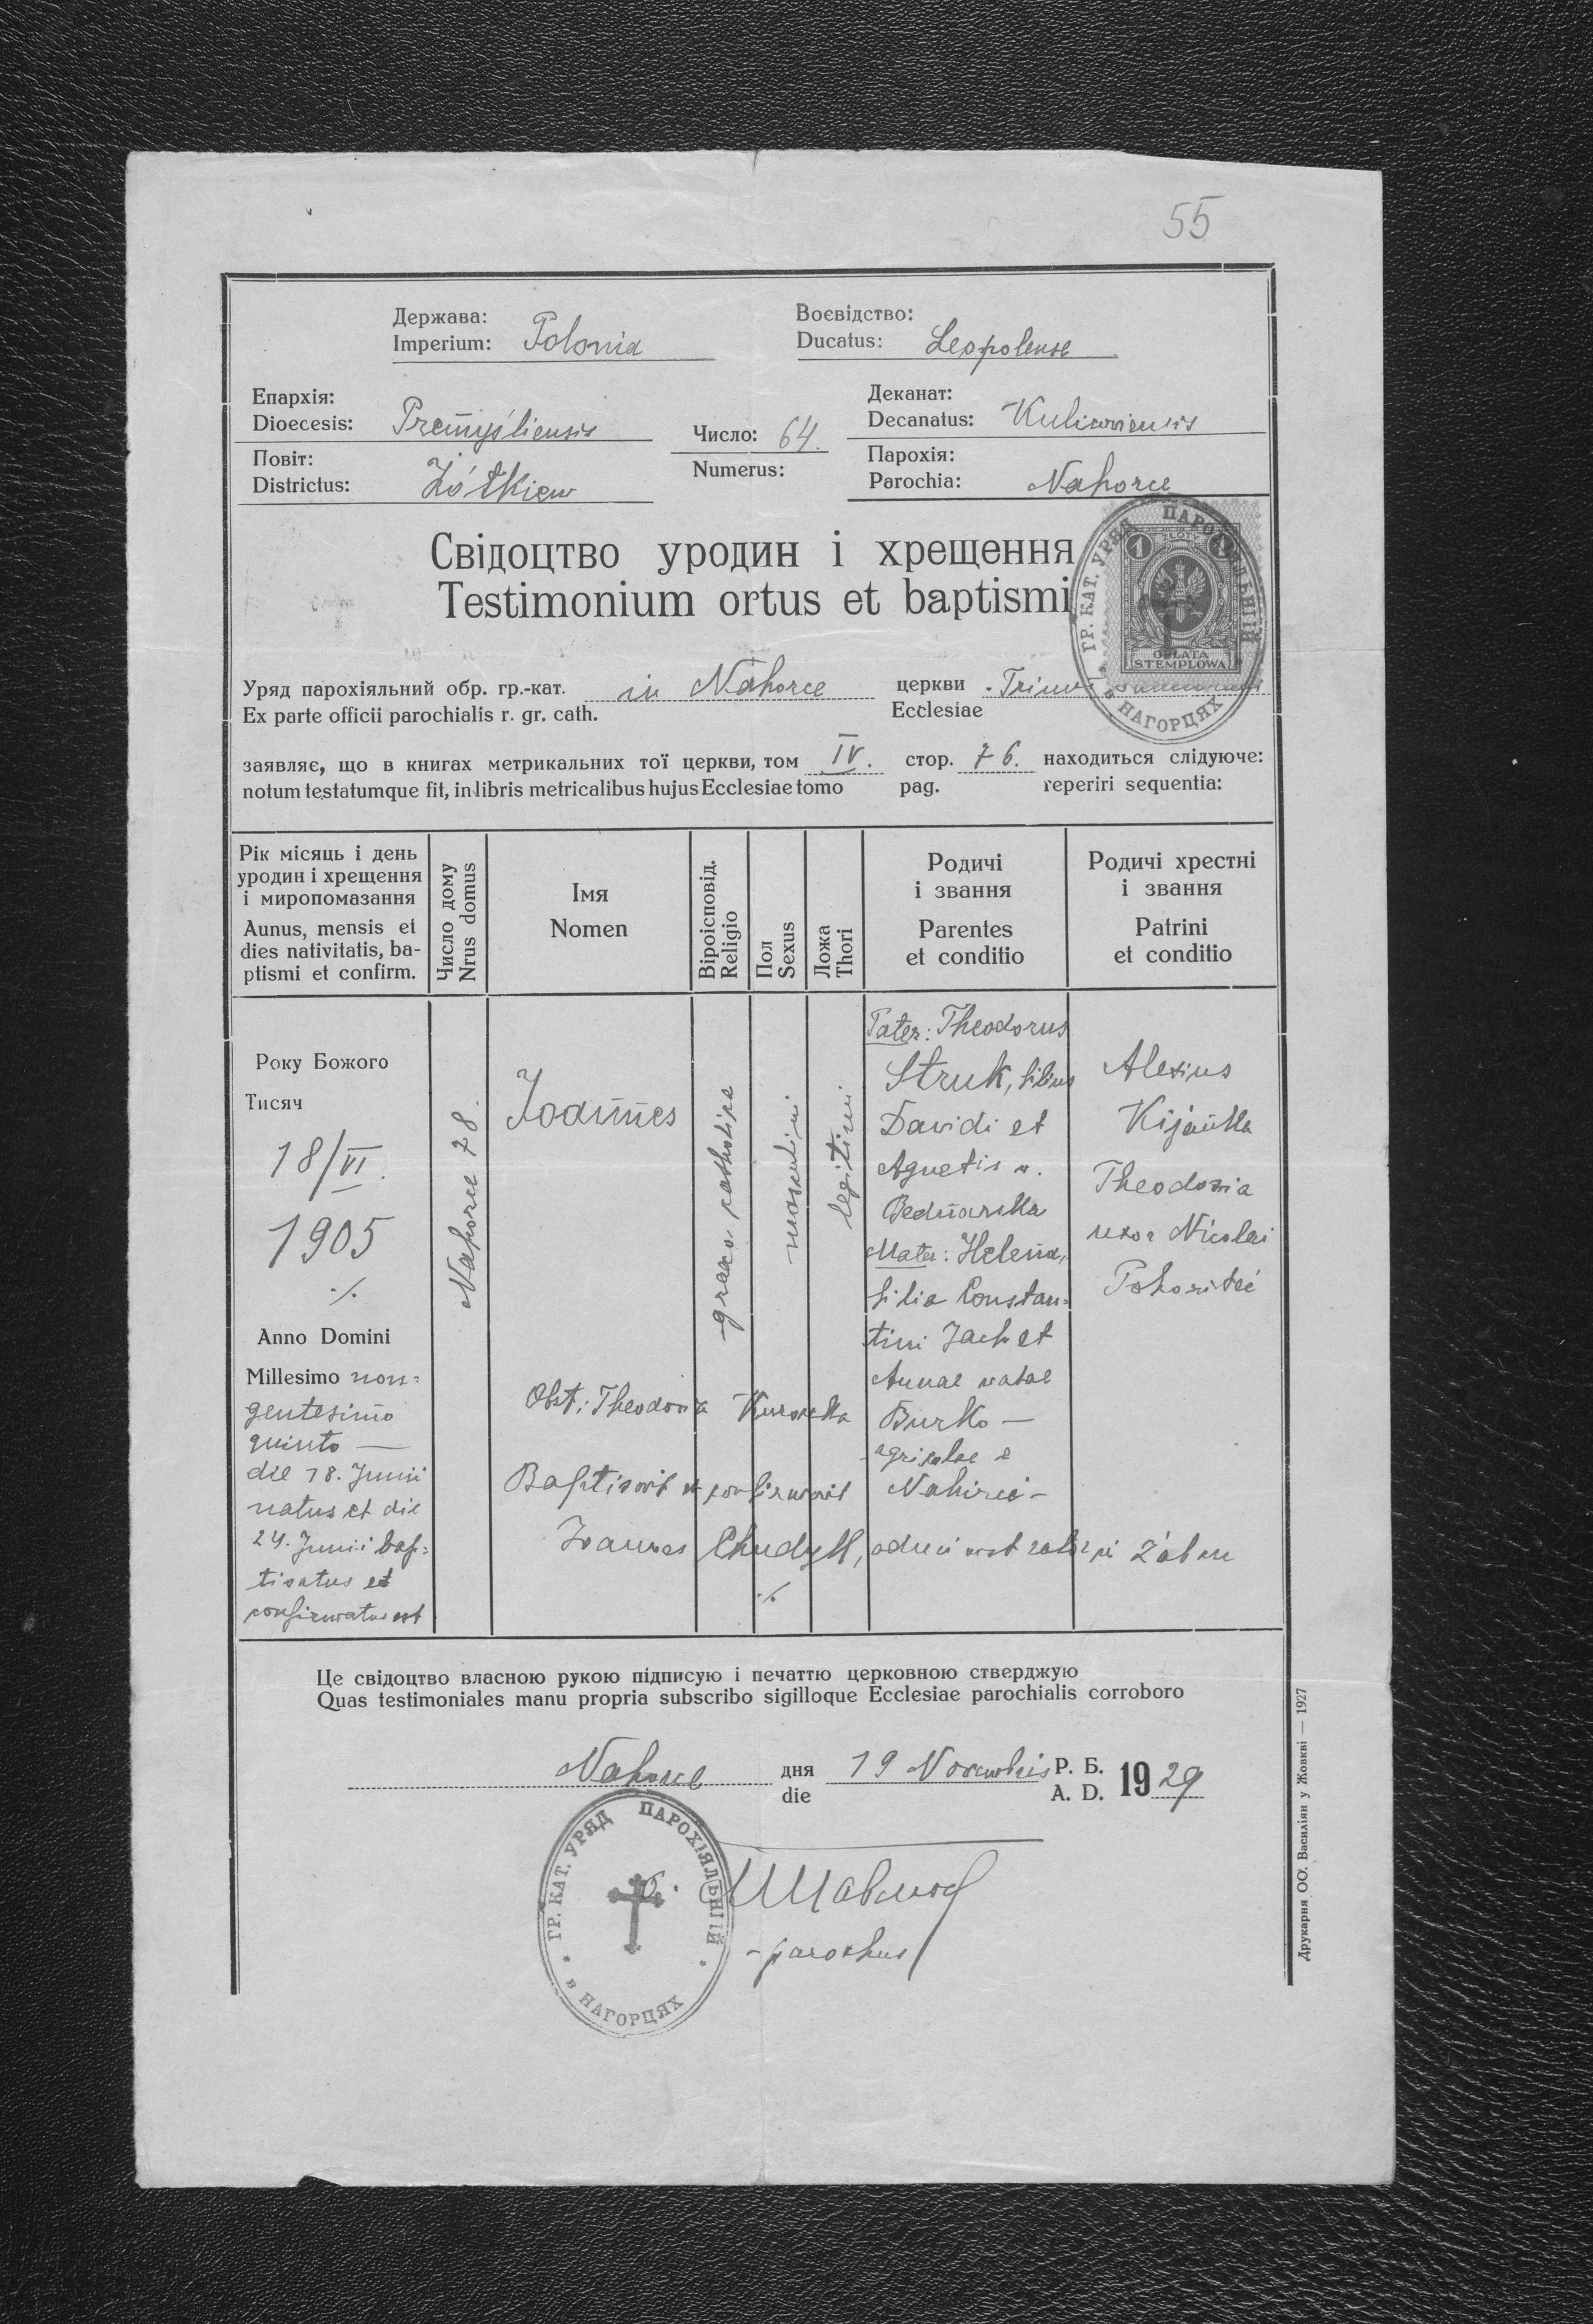 55
Держава:
Imperium: Polonia
Воєвідство:
Ducatus: Leopolense
Епархія:
Dioecesis: Premyśliensis
Число: 64.
Numerus:
Деканат:
Decanatus: Kulicoviensis
Повіт:
Districtus: Żółkiew
Парохія:
Parochia: Nahorce
Свідоцтво уродин і хрещення
Testimonium ortus et baptismi
1 ZŁOTY 1
OPŁATA
STEMPLOWA
ГР. КАТ. УРЯД ПАРОХІЯЛЬНІЙ
в НАГОРЦЯХ
Уряд парохіяльний обр. гр.-кат. in Nahorce церкви
Ex parte officii parochialis r. gr. cath. Ecclesiae
заявляє, що в книгах метрикальних тої церкви, том IV. стор. 76. находиться слідуюче:
notum testatumque fit, in libris metricalibus hujus Ecclesiae tomo pag. reperiri sequentia:
Рік місяць і день
уродин і хрещення
і миропомазання
Aunus, mensis et
dies nativitatis, ba-
ptismi et confirm.
Число дому
Nrus domus
Імя
Nomen
Віроісповід.
Religio
Пол
Sexus
Ложа
Thori
Родичі
і звання
Parentes
et conditio
Родичі хрестні
і звання
Patrini
et conditio
Року Божого
Тисяч
18/VI.
1905
./.
Anno Domini
Millesimo non=
gentesimo
quinto —
die 18. Junii
natus et die
24. Junii bap=
tisatus et
confirmatus est
Nahorce 78.
Joannes
graeco catholica
masculini
legitimi
Pater: Theodorus
Struk, filius
Davidi et
Agnetis n.
Bednarska
Mater: Helena,
filia Constan=
tini Jach et
Annae natae
Burko —
agricolae e
Nahirci —
Alexius
Kijanka
Theodosia
uxor Nicolai
Obst: Theodosia
Baptisavit et confirmavit
Joannes Chudyk,
./.
Це свідоцтво власною рукою підписую і печаттю церковною стверджую
Quas testimoniales manu propria subscribo sigilloque Ecclesiae parochialis corroboro
Nahorce дня 19 Novembris Р. Б. 1929
die A. D.
ГР. КАТ. УРЯД ПАРОХІЯЛЬНІЙ
в НАГОРЦЯХ
- parochus
Друкарня ОО. Василіян у Жовкві — 1927